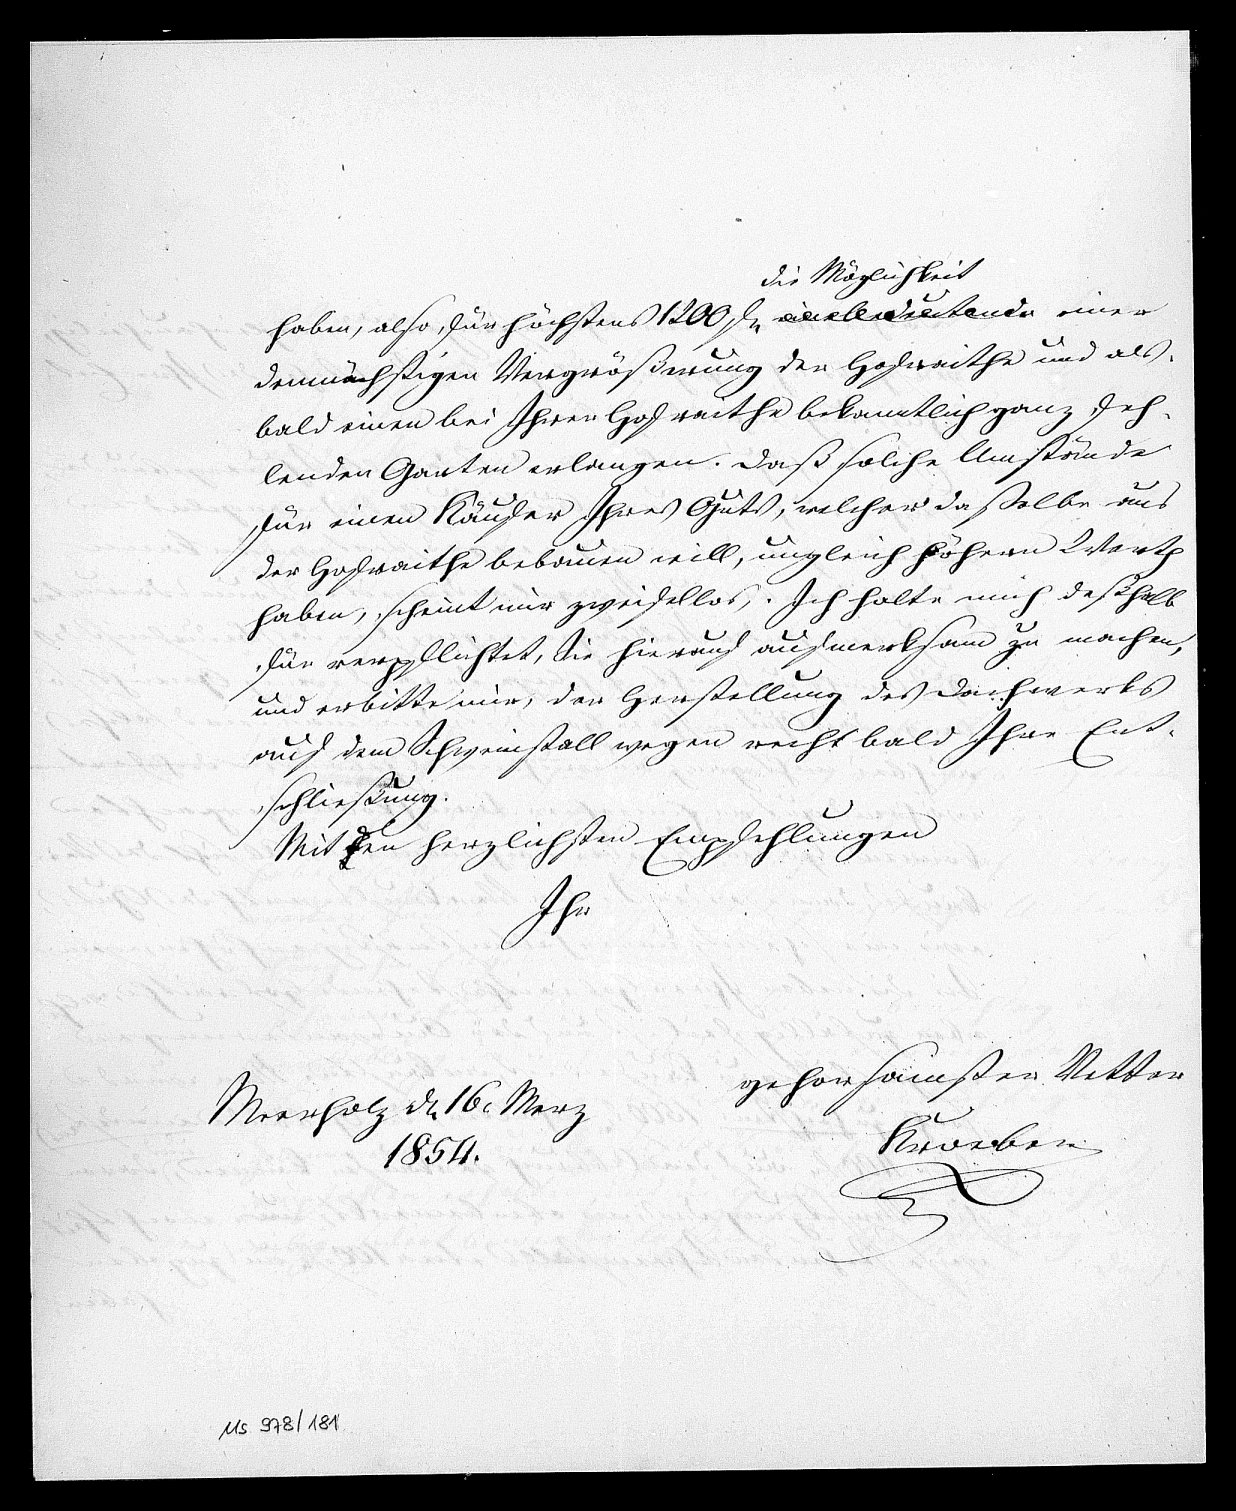 die Möglichkeit
haben, also für höchstens 1200 fl einer
demnächstigen Vergrößerung der Hofraithe und als-
bald einen bei Ihrer Hofraithe bekanntlich ganz feh-
lenden Garten erlangen. Daß solche Umstände
für einen Käufer Ihres Guts, welcher dasselbe aus
der Hofraithe bebauen will, ungleich höhern Werth
haben, scheint mir zweifellos. Ich halte mich deßhalb
für verpflichtet, Sie hierauf aufmerksam zu machen,
und erbitte mir, der Herstellung des Dachwerks
auf dem Schweinstall wegen recht bald Ihre Ent-
schließung.
Mit den herzlichsten Empfehlungen
Ihr
gehorsamster Vetter
Kroeber
Meerholz dn 16 Merz
1854.
Ms 978/181